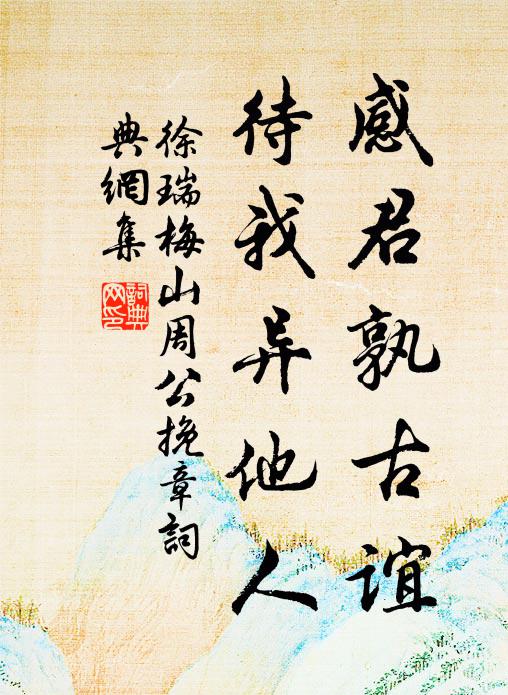 感君孰古誼
待我异他人
徐瑞梅山周公挽章詞
典網集
詞典网印